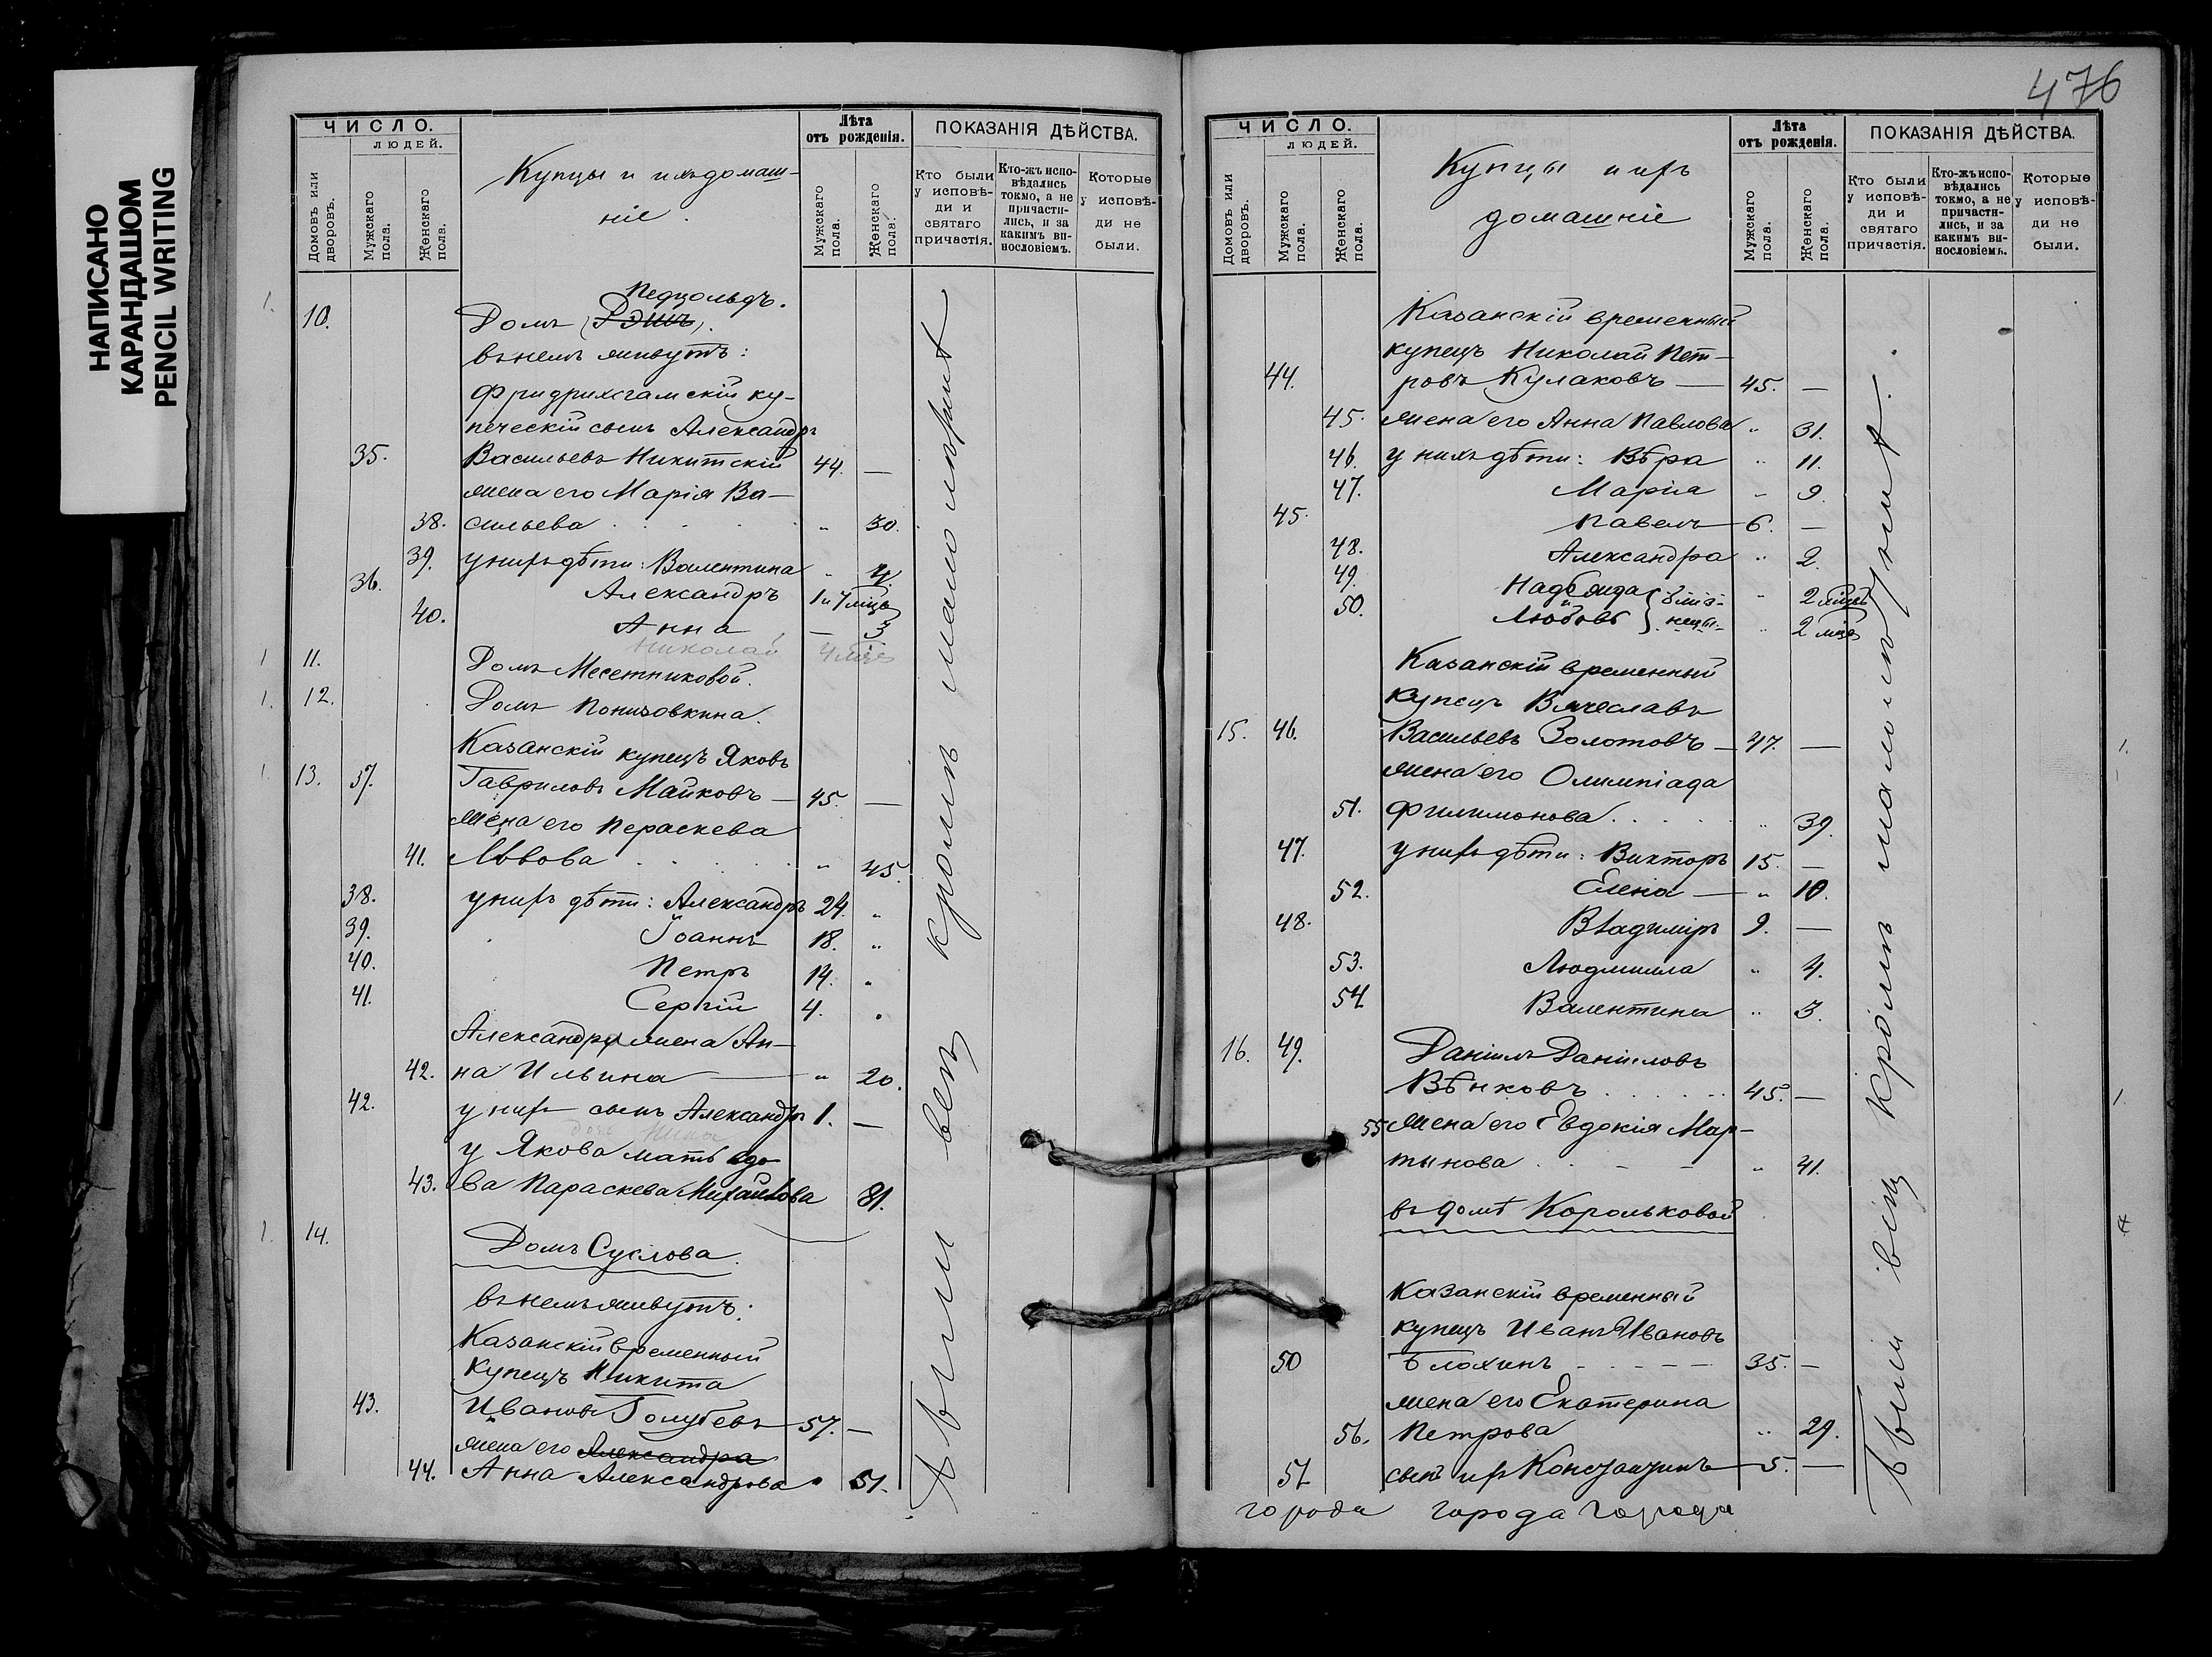 НАПИСАНО
КАРАНДАШОМ
PENCIL WRITING
ЧИСЛО.
ЛЮДЕЙ.
Домовъ или дворовъ.
Мужскаго пола.
Женскаго пола.
Купцы и ихъ домаш-
ніе.
Лѣта
отъ рожденія.
Мужскаго пола.
Женскаго пола.
ПОКАЗАНІЯ ДѢЙСТВА.
Кто были у исповѣ-ди и святаго причастія.
Кто-жъ испо-вѣдались токмо, а не причасти-лись, и за какимъ ви-нословіемъ.
Которые у исповѣ-ди не были.
Педцольдъ.
1. 10. Домъ (Рэшъ).
въ немъ живутъ:
Фридрихсгамскій ку-
печескій сынъ Александръ
35. Васильевъ Никитскій 44. —
жена его Марія Ва-
38. сильева " 30.
39. у нихъ дѣти: Валентина " 4.
36. Александръ 1 и 7 мцв
40. Анна — 3
Николай 4 мцв
1 11. Домъ Месетниковой.
1. 12. Домъ Понизовкина.
Казанскій купецъ Яковъ
1. 13. 37. Гавриловъ Майковъ — 45. —
жена его Пераскева
41. Львова " 45.
38. у нихъ дѣти: Александръ 24. "
39. Іоаннъ 18. "
40. Петръ 14. "
41. Сергій 4. "
Александра жена Ан-
42. на Ильина — " 20.
42. у нихъ сынъ Александръ 1. —
дочь Нина
у Якова мать вдо-
43. ва Параскева Михайлова 81.
1. 14. Домъ Суслова.
въ немъ живутъ:
Казанскій временный
купецъ Никита
43. Ивановъ Голубевъ 57. —
жена его Александра
44. Анна Александрова " 51.
были всѣ кромѣ малолѣтнихъ
476
ЧИСЛО.
ЛЮДЕЙ.
Домовъ или дворовъ.
Мужскаго пола.
Женскаго пола.
Купцы и ихъ
домашніе
Лѣта
отъ рожденія.
Мужскаго пола.
Женскаго пола.
ПОКАЗАНІЯ ДѢЙСТВА.
Кто были у исповѣ-ди и святаго причастія.
Кто-жъ испо-вѣдались токмо, а не причасти-лись, и за какимъ ви-нословіемъ.
Которые у исповѣ-ди не были.
Казанскій временный
купецъ Николай Пет-
44. ровъ Кулаковъ — 45. —
45. жена его Анна Павлова " 31.
46. у нихъ дѣти: Вѣра " 11.
47. Марія " 9.
45. Павелъ 6. —
48. Александра " 2.
49. Надѣжда } близ- " 2 мцв
50. и Любовь } нецы " 2 мцв
Казанскій временный
купецъ Вячеславъ
15. 46. Васильевъ Золотовъ — 47. — 1.
жена его Олимпіада
51. Филимонова. " 39.
47. у нихъ дѣти: Викторъ 15. —
52. Елена — " 10.
48. Владиміръ 9. —
53. Людмила " 4.
54 Валентина " 3.
16. 49. Даніилъ Даніиловъ
Вѣнковъ 45. — 1.
55 жена его Евдокія Мар-
тынова " 41.
въ домѣ Корольковой
Казанскій временный
купецъ Иванъ Ивановъ
50 Блохинъ 35. —
жена его Екатерина
56. Петрова " 29.
51 сынъ ихъ Константинъ 5. —
были всѣ кромѣ малолѣтнихъ.
города города города